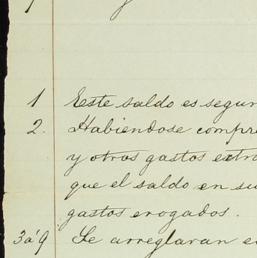 1 Este saldo es segur
2. Habiendose compr
y otros gastos extra
que el saldo en su
gastos erogados.
3 á 9 Se arreglaran e